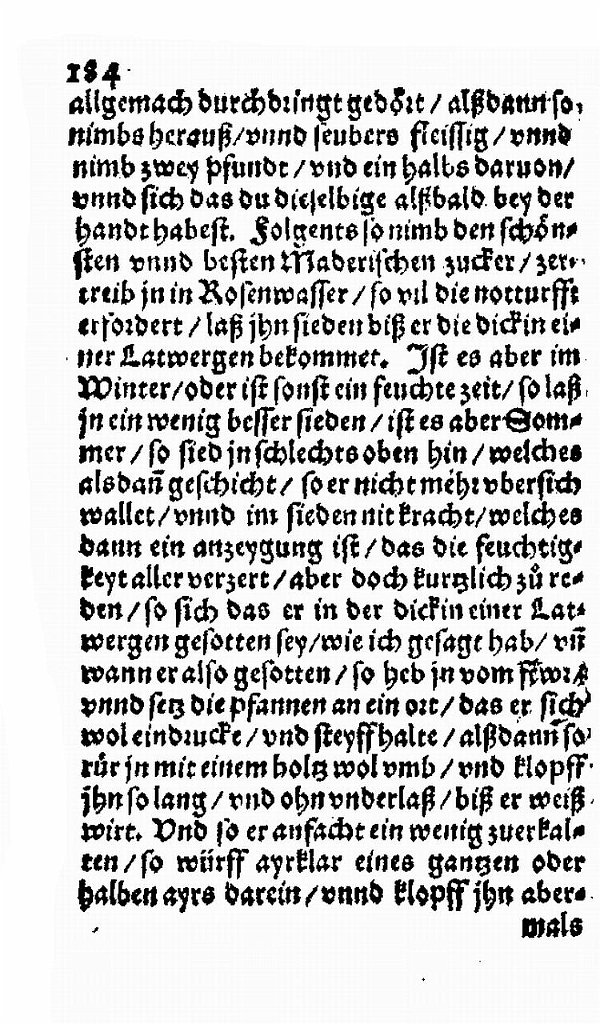 184
allgemach durchdringt gedört / alßdann so
nimbs herauß/vnnd seubers fleissig / vnnd
nimb zwey pfundt / vnd ein halbs daruon/
vnnd sich das du dieselbige alßbald bey der
handt habest. Folgents so nimb den schön-
sten vnnd besten Maderischen zucker / zer-
treib jn in Rosenwasser / so vil die notturfft
erfordert / laß jhn sieden biß er die dick in ei-
ner Latwergen bekommet. Ist es aber im
Winter/oder ist sonst ein feuchte zeit/ so laß
jn ein wenig besser sieden / ist es aber Som-
mer / so sied jn schlechts oben hin / welches
alsdañ geschicht / so er nicht mehr vbersich
wallet / vnnd im sieden nit kracht/welches
dann ein anzeygung ist / das die feuchtig-
keyt aller verzert / aber doch kurtzlich zů re-
den / so sich das er in der dick in einer Lat-
wergen gesotten sey/wie ich gesagt hab/ vñ
wann er also gesotten / so heb jn vom fewr/
vnnd setz die pfannen an ein ort / das er sich
wol eindrucke / vnd steyff halte / alßdann so
rür jn mit einem holtz wol vmb / vnd klopff
jhn so lang / vnd ohn vnderlaß / biß er weiß
wirt. Vnd so er anfacht ein wenig zuerkal-
ten / so würff ayrklar eines gantzen oder
halben ayrs darein / vnnd klopff jhn aber-
mals